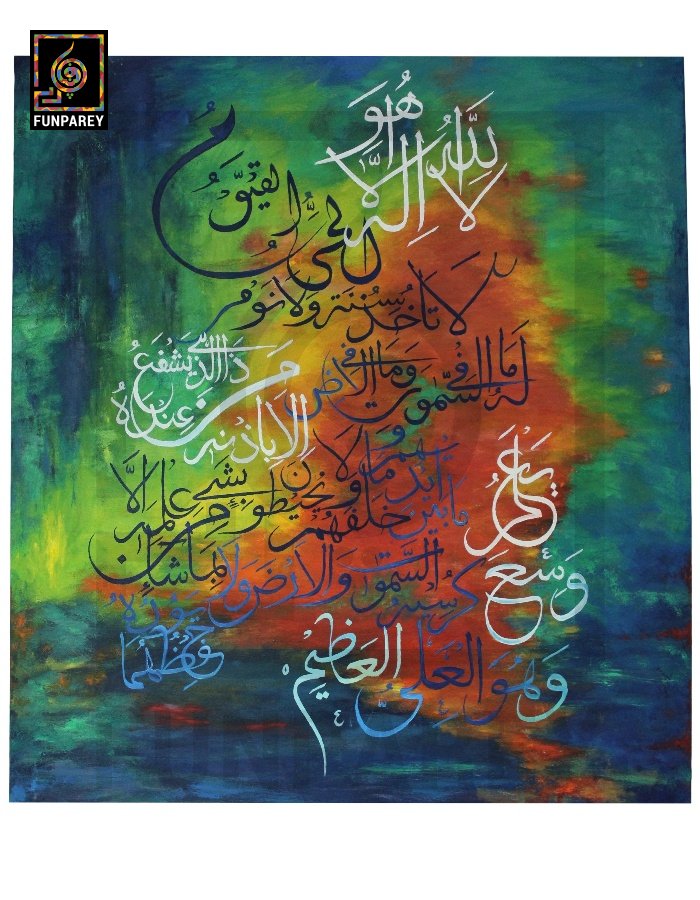 FUNPAREY
الله لا اله الا هو
الحي القيوم
لا تاخذه سنة ولا نوم
له ما في السموت وما في الارض
من ذا الذي يشفع عنده
الا باذنه
يعلم ما بين ايديهم وما خلفهم
ولا يحيطون بشيء من علمه الا
بما شاء
وسع كرسيه السموت والارض ولا
يؤده حفظهما
وهو العلي العظيم